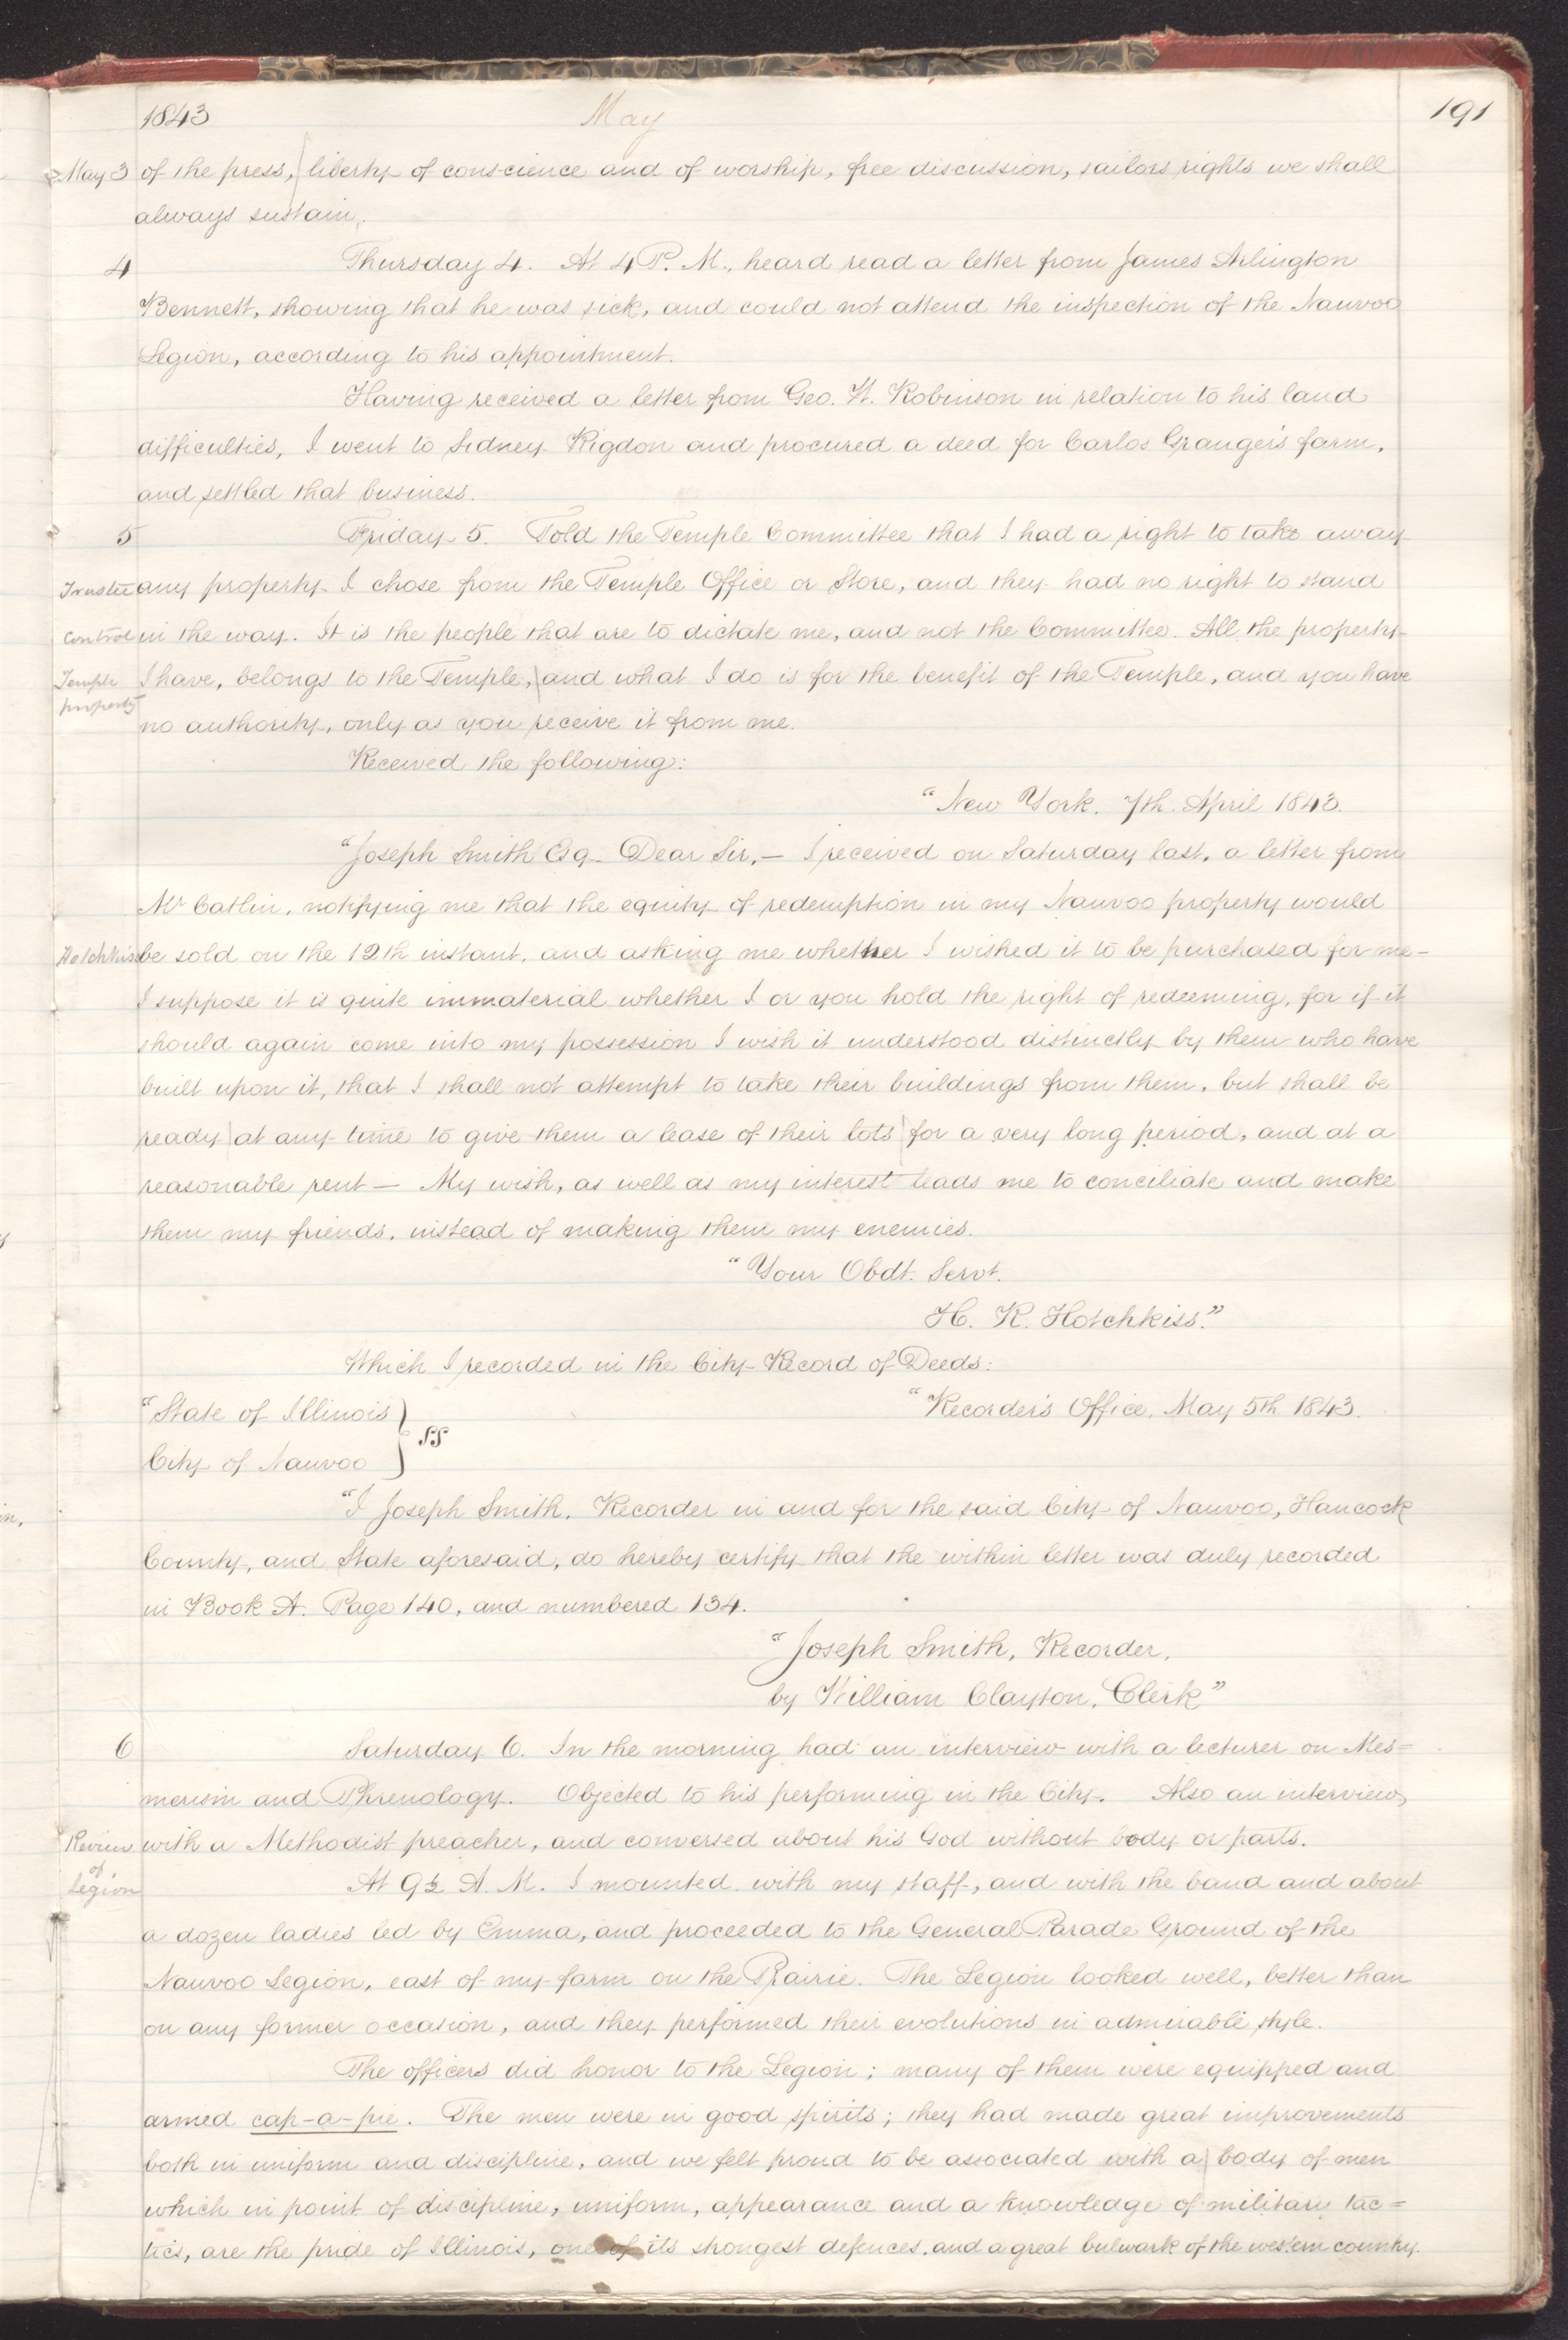 1843 May 191
May 3 of the press, liberty of conscience and of worship, free discussion, sailors rights we shall
always sustain.
4 Thursday 4. At 4 P. M., heard read a letter from James Arlington
Bennett, showing that he was sick, and could not attend the inspection of the Nauvoo
Legion, according to his appointment.
Having received a letter from Geo. W. Robinson in relation to his land
difficulties, I went to Sidney Rigdon and procured a deed for Carlos Granger's farm,
and settled that business.
5 Friday 5. Told the Temple Committee that I had a right to take away
Trustee any property I chose from the Temple Office or Store, and they had no right to stand
control in the way. It is the people that are to dictate me, and not the Committee. All the property
Temple I have, belongs to the Temple, and what I do is for the benefit of the Temple, and you have
property no authority, only as you receive it from me.
Received the following:
"New York. 7th. April 1843.
"Joseph Smith Esq. Dear Sir,— I received on Saturday last, a letter from
Mr Catlin, notifying me that the equity of redemption in my Nauvoo property would
Hotchkiss be sold on the 12th instant, and asking me whether I wished it to be purchased for me—
I suppose it is quite immaterial whether I or you hold the right of redeeming, for if it
should again come into my possession I wish it understood distinctly by them who have
built upon it, that I shall not attempt to take their buildings from them, but shall be
ready at any time to give them a lease of their lots for a very long period, and at a
reasonable rent — My wish, as well as my interest leads me to conciliate and make
them my friends, instead of making them my enemies.
"Your Obdt. Servt.
H. R. Hotchkiss."
Which I recorded in the City Record of Deeds:
"State of Illinois } "Recorder's Office, May 5th. 1843.
City of Nauvoo } SS
"I Joseph Smith, Recorder in and for the said City of Nauvoo, Hancock
County, and State aforesaid, do hereby certify that the within letter was duly recorded
in Book A. Page 140, and numbered 134.
"Joseph Smith, Recorder,
by William Clayton, Clerk"
6 Saturday 6. In the morning had an interview with a lecturer on Mes=
merism and Phrenology. Objected to his performing in the City. Also an interview
Review with a Methodist preacher, and conversed about his God without body or parts.
of Legion At 9½ A. M. I mounted with my staff, and with the band and about
a dozen ladies led by Emma, and proceeded to the General Parade Ground of the
Nauvoo Legion, east of my farm on the Prairie. The Legion looked well, better than
on any former occasion, and they performed their evolutions in admirable style.
The officers did honor to the Legion; many of them were equipped and
armed cap-a-pie. The men were in good spirits; they had made great improvements
both in uniform and discipline, and we felt proud to be associated with a body of men
which in point of discipline, uniform, appearance and a knowledge of military tac=
tics, are the pride of Illinois, one of its strongest defences, and a great bulwark of the western country.